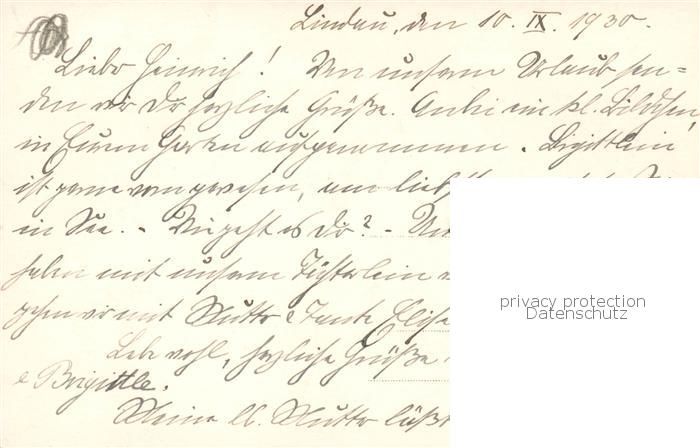 Lindau, den 10. IX. 1930.
Lieber Heinrich! Von unserm Urlaub sen-
den wir Dir herzliche Grüße. Anbei ein kl. Bildchen,
in Eurem Garten aufgenommen. Brigittlein
ist gerne gewesen, am lieb
im See. - Wie geht es Dir? - Un
haben mit unserm Töchterlein
gehen wir mit Mutter & Tante Elise
Lebe wohl, herzliche Grüße
& Brigittle.
Meine lb. Mutter läßt
privacy protection
Datenschutz